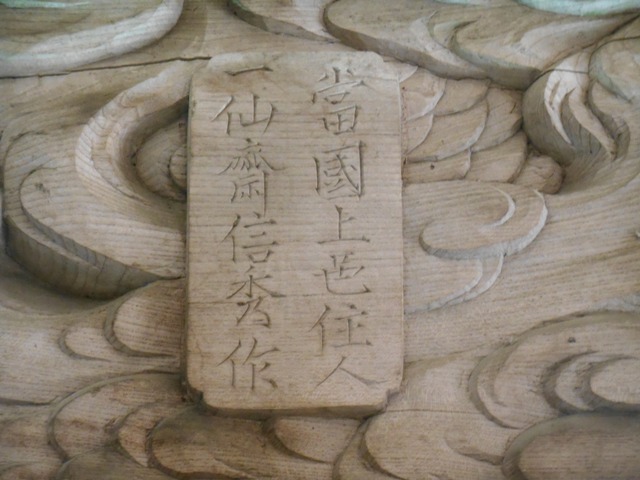 當國上邑住人
一仙齋信秀作